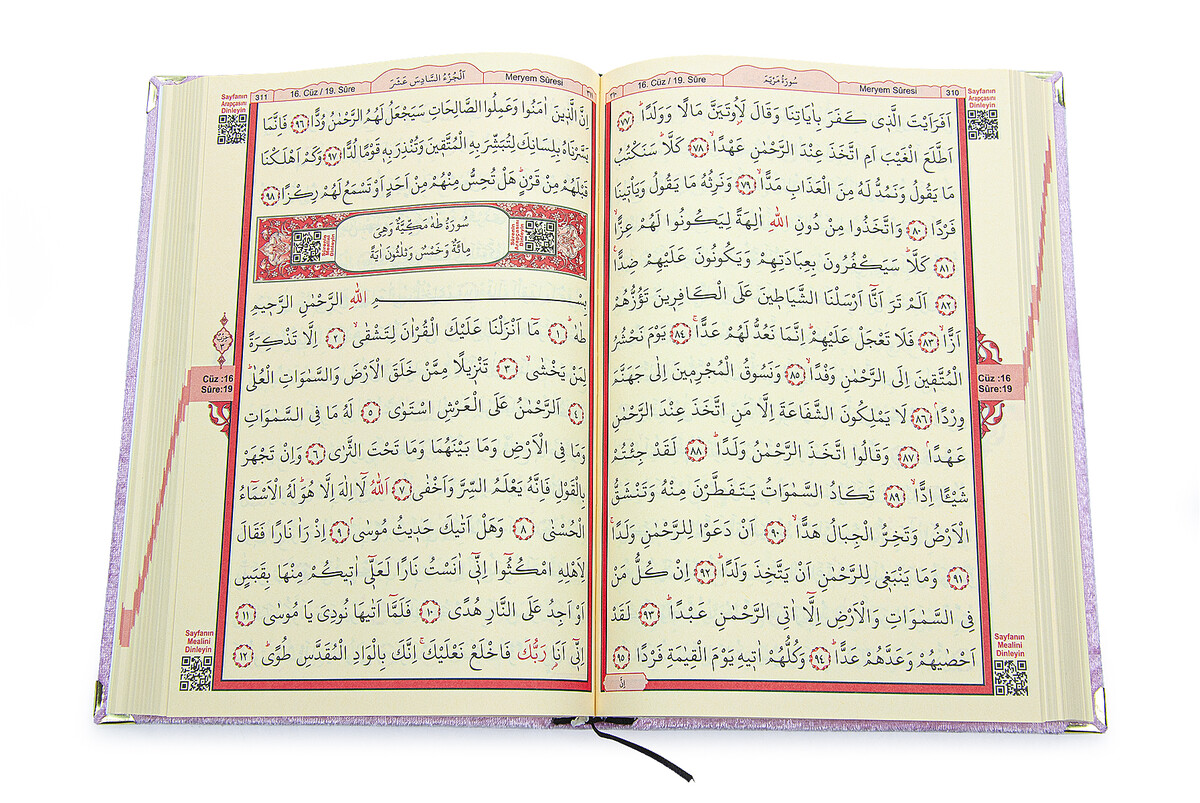 سُورَةُ مَرْيَمَ
16. Cüz / 19. Sûre
Meryem Sûresi
310
Sayfanın
Arapçasını
Dinleyin
اَفَرَاَيْتَ الَّذ۪ي كَفَرَ بِاٰيَاتِنَا وَقَالَ لَاُو۫تَيَنَّ مَالًا وَوَلَدًاۜ ﴿٧٧﴾
اَطَّلَعَ الْغَيْبَ اَمِ اتَّخَذَ عِنْدَ الرَّحْمٰنِ عَهْدًاۙ ﴿٧٨﴾ كَلَّاۜ سَنَكْتُبُ
مَا يَقُولُ وَنَمُدُّ لَهُ مِنَ الْعَذَابِ مَدًّاۙ ﴿٧٩﴾ وَنَرِثُهُ مَا يَقُولُ وَيَأْت۪ينَا
فَرْدًا ﴿٨٠﴾ وَاتَّخَذُوا مِنْ دُونِ اللّٰهِ اٰلِهَةً لِيَكُونُوا لَهُمْ عِزًّاۙ
﴿٨١﴾ كَلَّاۜ سَيَكْفُرُونَ بِعِبَادَتِهِمْ وَيَكُونُونَ عَلَيْهِمْ ضِدًّا۟
﴿٨٢﴾ اَلَمْ تَرَ اَنَّٓا اَرْسَلْنَا الشَّيَاط۪ينَ عَلَى الْكَافِر۪ينَ تَؤُزُّهُمْ
اَزًّاۙ ﴿٨٣﴾ فَلَا تَعْجَلْ عَلَيْهِمْۜ اِنَّمَا نَعُدُّ لَهُمْ عَدًّاۚ ﴿٨٤﴾ يَوْمَ نَحْشُرُ
الْمُتَّق۪ينَ اِلَى الرَّحْمٰنِ وَفْدًاۙ ﴿٨٥﴾ وَنَسُوقُ الْمُجْرِم۪ينَ اِلٰى جَهَنَّمَ
وِرْدًاۢ ﴿٨٦﴾ لَا يَمْلِكُونَ الشَّفَاعَةَ اِلَّا مَنِ اتَّخَذَ عِنْدَ الرَّحْمٰنِ
عَهْدًاۢ ﴿٨٧﴾ وَقَالُوا اتَّخَذَ الرَّحْمٰنُ وَلَدًاۜ ﴿٨٨﴾ لَقَدْ جِئْتُمْ
شَيْـًٔا اِدًّاۙ ﴿٨٩﴾ تَكَادُ السَّمٰوَاتُ يَتَفَطَّرْنَ مِنْهُ وَتَنْشَقُّ
الْاَرْضُ وَتَخِرُّ الْجِبَالُ هَدًّاۙ ﴿٩٠﴾ اَنْ دَعَوْا لِلرَّحْمٰنِ وَلَدًاۚ
﴿٩١﴾ وَمَا يَنْبَغ۪ي لِلرَّحْمٰنِ اَنْ يَتَّخِذَ وَلَدًاۜ ﴿٩٢﴾ اِنْ كُلُّ مَنْ
فِي السَّمٰوَاتِ وَالْاَرْضِ اِلَّٓا اٰتِي الرَّحْمٰنِ عَبْدًاۜ ﴿٩٣﴾ لَقَدْ
اَحْصٰيهُمْ وَعَدَّهُمْ عَدًّاۜ ﴿٩٤﴾ وَكُلُّهُمْ اٰت۪يهِ يَوْمَ الْقِيٰمَةِ فَرْدًا ﴿٩٥﴾
اِنَّ
Cüz :16
Sûre:19
Sayfanın
Mealini
Dinleyin
اَلْجُزْءُ السَّادِسَ عَشَرَ
311
16. Cüz / 19. Sûre
Meryem Sûresi
Sayfanın
Arapçasını
Dinleyin
اِنَّ الَّذ۪ينَ اٰمَنُوا وَعَمِلُوا الصَّالِحَاتِ سَيَجْعَلُ لَهُمُ الرَّحْمٰنُ وُدًّا ﴿٩٦﴾ فَاِنَّمَا
يَسَّرْنَاهُ بِلِسَانِكَ لِتُبَشِّرَ بِهِ الْمُتَّق۪ينَ وَتُنْذِرَ بِه۪ قَوْمًا لُدًّا ﴿٩٧﴾ وَكَمْ اَهْلَكْنَا
قَبْلَهُمْ مِنْ قَرْنٍۜ هَلْ تُحِسُّ مِنْهُمْ مِنْ اَحَدٍ اَوْ تَسْمَعُ لَهُمْ رِكْزًا ﴿٩٨﴾
سُورَةُ طٰهٰ مَكِّيَّةٌ وَهِيَ
مِائَةٌ وَخَمْسٌ وَثَلٰثُونَ اٰيَةً
بِسْمِ اللّٰهِ الرَّحْمٰنِ الرَّح۪يمِ
طٰهٰۜ ﴿١﴾ مَٓا اَنْزَلْنَا عَلَيْكَ الْقُرْاٰنَ لِتَشْقٰىۙ ﴿٢﴾ اِلَّا تَذْكِرَةً
لِمَنْ يَخْشٰىۙ ﴿٣﴾ تَنْز۪يلًا مِمَّنْ خَلَقَ الْاَرْضَ وَالسَّمٰوَاتِ الْعُلٰىۜ
﴿٤﴾ اَلرَّحْمٰنُ عَلَى الْعَرْشِ اسْتَوٰى ﴿٥﴾ لَهُ مَا فِي السَّمٰوَاتِ
وَمَا فِي الْاَرْضِ وَمَا بَيْنَهُمَا وَمَا تَحْتَ الثَّرٰى ﴿٦﴾ وَاِنْ تَجْهَرْ
بِالْقَوْلِ فَاِنَّهُ يَعْلَمُ السِّرَّ وَاَخْفٰى ﴿٧﴾ اَللّٰهُ لَٓا اِلٰهَ اِلَّا هُوَۜ لَهُ الْاَسْمَٓاءُ
الْحُسْنٰى ﴿٨﴾ وَهَلْ اَتٰيكَ حَد۪يثُ مُوسٰىۢ ﴿٩﴾ اِذْ رَاٰ نَارًا فَقَالَ
لِاَهْلِهِ امْكُثُٓوا اِنّ۪ٓي اٰنَسْتُ نَارًا لَعَلّ۪ٓي اٰت۪يكُمْ مِنْهَا بِقَبَسٍ
اَوْ اَجِدُ عَلَى النَّارِ هُدًى ﴿١٠﴾ فَلَمَّٓا اَتٰيهَا نُودِيَ يَا مُوسٰى ﴿١١﴾
اِنّ۪ٓي اَنَا۬ رَبُّكَ فَاخْلَعْ نَعْلَيْكَۚ اِنَّكَ بِالْوَادِ الْمُقَدَّسِ طُوًىۜ ﴿١٢﴾
Cüz :16
Sûre:19
Sayfanın
Mealini
Dinleyin